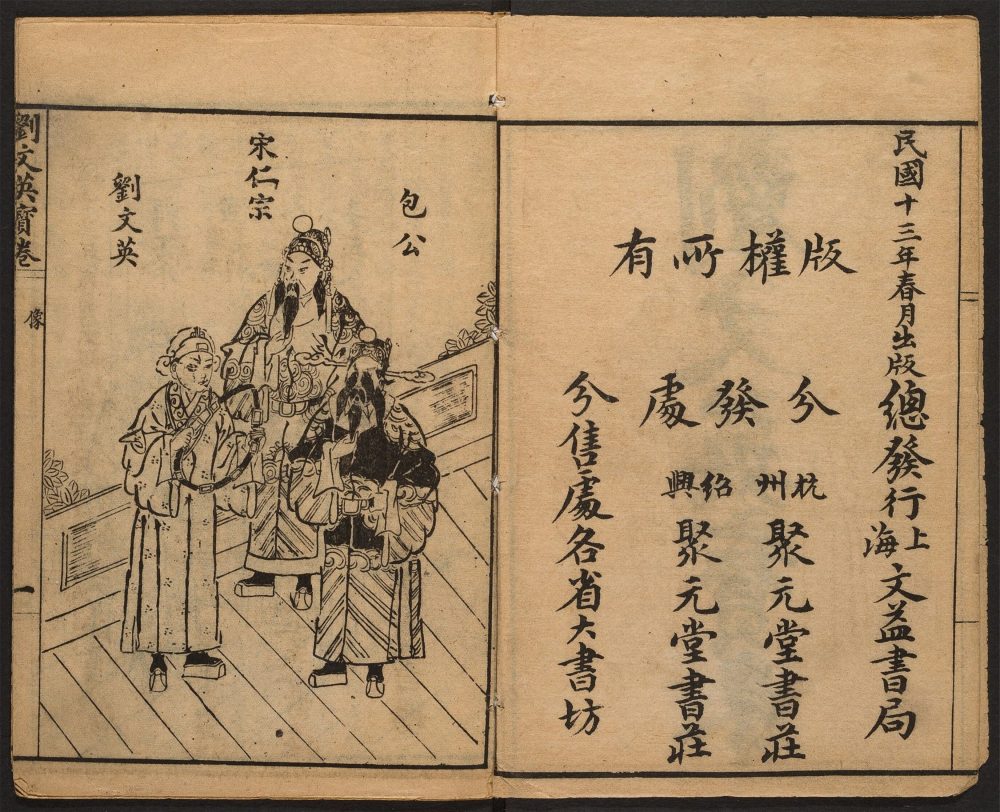 民國十三年春月出版總發行上海文益書局
版權所有
分發處
杭州聚元堂書莊
紹興聚元堂書莊
分售處各省大書坊
包公
宋仁宗
劉文英
劉文英寶卷
像
一